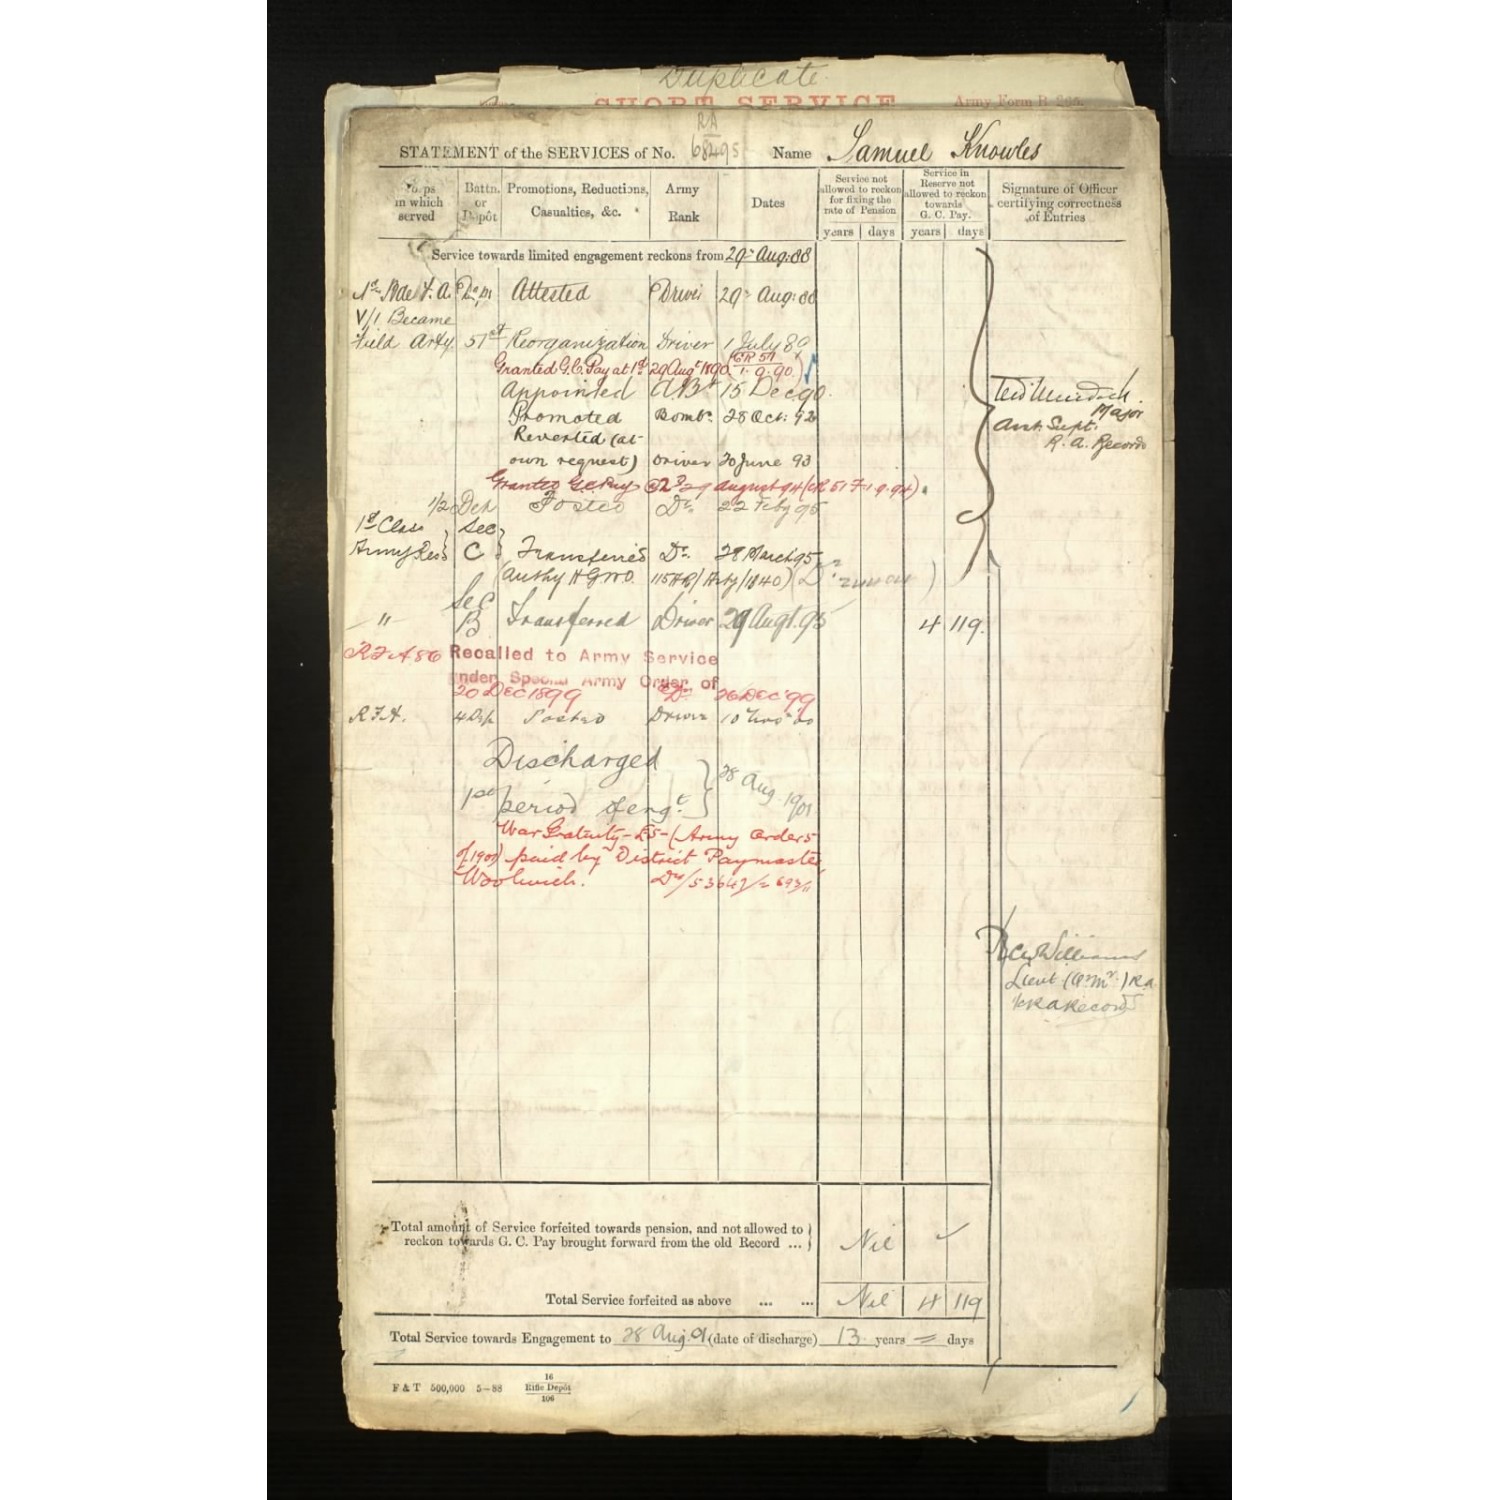 Duplicate
SHORT SERVICE Army Form B. 265.
STATEMENT of the SERVICES of No. RA 68495 Name Samuel Knowles
Corps in which served
Battn. or Depôt
Promotions, Reductions, Casualties, &c.
Army Rank
Dates
Service not allowed to reckon for fixing the rate of Pension
years days
Service in Reserve not allowed to reckon towards G. C. Pay.
years days
Signature of Officer certifying correctness of Entries
Service towards limited engagement reckons from 29 Aug: 88
Attested Driver 29 Aug: 88
V/1 Became
Field Arty. 51st Reorganization Driver 1 July 89
Granted G.C. Pay at 1d. 29 Augt 1890. (CR 51 1.9.90.)
Appointed A Br 15 Dec 90.
Promoted Bombr. 28 Oct: 92
Reverted (at
own request) Driver 20 June 93
Granted G.C. Pay @ 2d 29 August 94 (CR 51 F 1.9.94).
1/2 Dep Posted Dr. 22 Feby 95
1st Class Sec
Army Res C Transferred Dr. 28 March 95
(Authy H Gds WO
Sec
" B Transferred Driver 29 Augt. 95 4 119.
Major
Asst. Supt.
R. A. Records
RFA 86 Recalled to Army Service
under Special Army Order of
20 Dec 1899 Dr. 26 Dec '99
R.F.A. 4 Dep Posted Driver 10 Novr 00
Discharged
1st period of engt. 28 Aug. 1901
War Gratuity - £5 - (Army Orders
of 1901) paid by District Paymaster,
Woolwich.
Williams
Lieut (Qr. Mr.) R.A
Total amount of Service forfeited towards pension, and not allowed to
reckon towards G. C. Pay brought forward from the old Record ... Nil
Total Service forfeited as above ... ... Nil 4 119
Total Service towards Engagement to 28 Aug. 01 (date of discharge) 13 years = days
F & T 500,000 5—88 16 Rifle Depôt 106